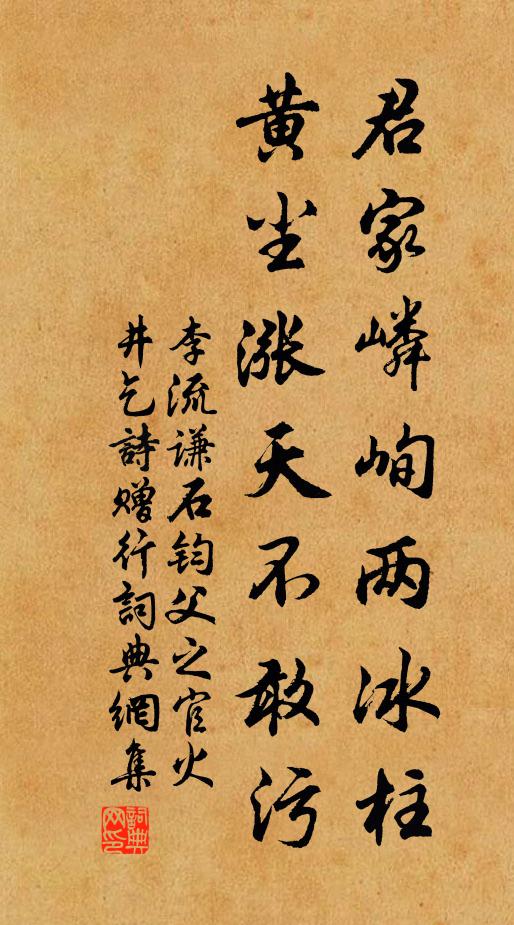 君家嶙峋两冰柱
黄尘涨天不敢污
李流谦石钧父之官火
井乞詩赠行詞典網集
詞典网印